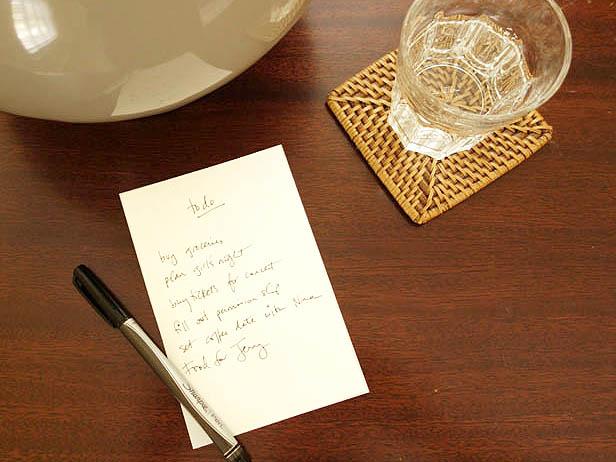 to do
buy groceries
plan girls night
buy tickets for concert
fill out permission slip
set coffee date with Nina
Food for Jerry
Sharpie